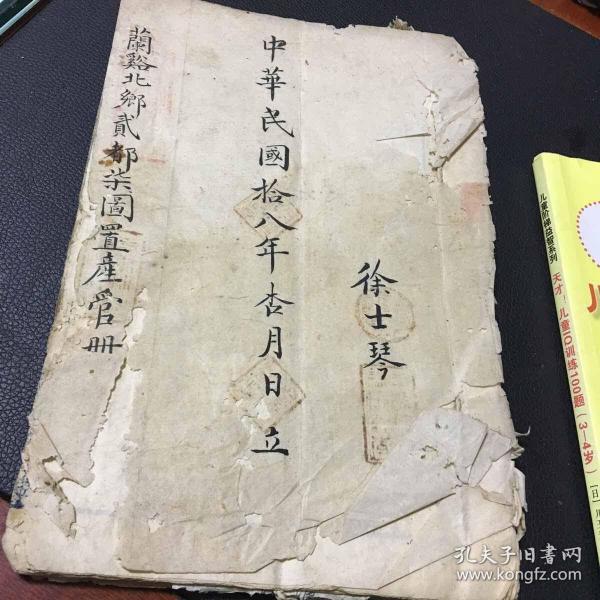 徐士琴
中華民國拾八年杏月日立
蘭谿北鄉貳都柒圖置產管冊
儿童阶梯益智系列
天才!儿童IQ训练100题(3—4岁)
[日]
孔夫子旧书网
www.kongfz.com